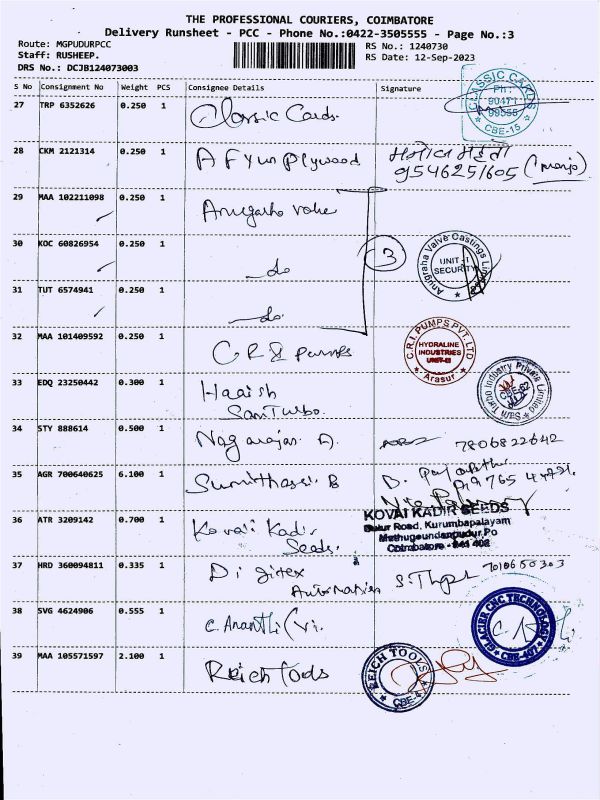 THE PROFESSIONAL COURIERS, COIMBATORE
Delivery Runsheet - PCC - Phone No.:0422-3505555 - Page No.:3
Route: MGPUDURPCC RS No.: 1240730
Staff: RUSHEEP. RS Date: 12-Sep-2023
DRS No.: DCJB124073003
S No Consignment No Weight PCS Consignee Details Signature
27 TRP 6352626 0.250 1 Classic Cards. CLASSIC CARDS Ph: 90471 99555 CBE-15
28 CKM 2121314 0.250 1 Plywood
9546251605 (manoj)
29 MAA 102211098 0.250 1 Anugraha
30 KOC 60826954 0.250 1 do 3 Anugraha Valve Castings Limited UNIT-I SECURITY
31 TUT 6574941 0.250 1 do
32 MAA 101409592 0.250 1 C.R.I Pumps C.R.I. PUMPS PVT. LTD HYDRALINE INDUSTRIES UNIT-III Arasur
33 EDQ 23250442 0.300 1 Harish
Sam Turbo. Sam Turbo Industry Private Limited CBE-62
34 STY 888614 0.500 1 Nagarajan A. 7806822642
35 AGR 700640625 6.100 1 B
36 ATR 3209142 0.700 1 Kovai Kadir
Seeds. KOVAI KADIR SEEDS
Road, Kurumbapalayam
Po
Coimbatore - 641
37 HRD 360094811 0.335 1 Digitex
Automation 7010650303
38 SVG 4624906 0.555 1 C. Ananthi GLACIER CNC TECHNOLOGY CBE-407
39 MAA 105571597 2.100 1 Reich Tools REICH TOOLS CBE-4